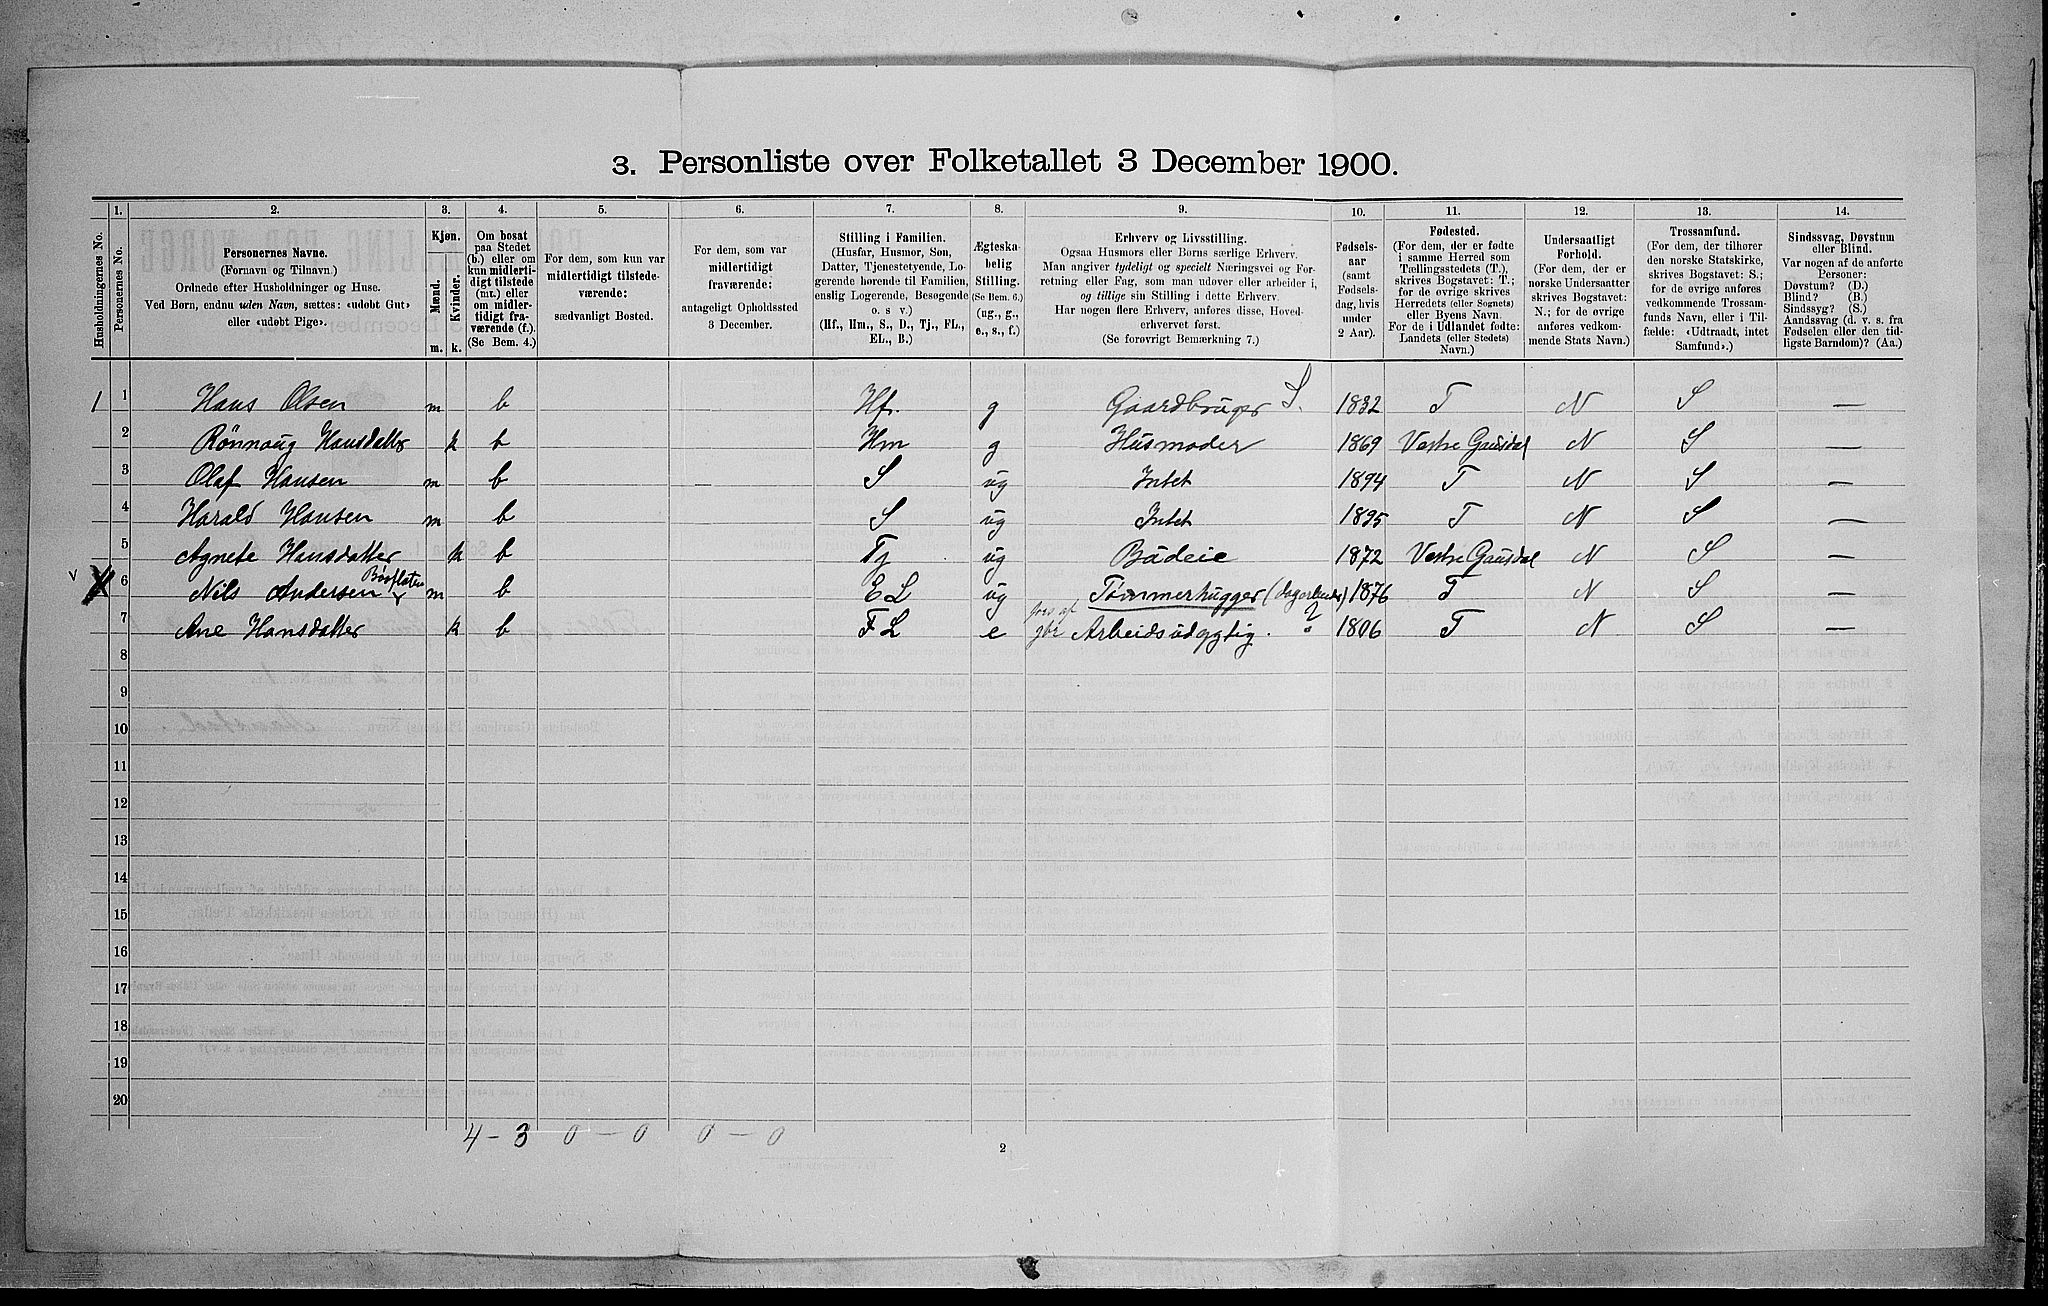 3. Personliste over Folketallet 3 December 1900.
1. 2. 3. 4. 5. 6. 7. 8. 9. 10. 11. 12. 13. 14.
Husholdningernes No.
Personernes No.
Personernes Navne.
(Fornavn og Tilnavn.)
Ordnede efter Husholdninger og Huse.
Ved Børn, endnu uden Navn, sættes: «udøbt Gut»
eller «udøbt Pige».
Kjøn.
Mænd.
Kvinder.
m. k.
Om bosat
paa Stedet
(b.) eller om
kun midlerti-
digt tilstede
(mt.) eller
om midler-
tidigt fra-
værende (f.).
(Se Bem. 4.)
For dem, som kun var
midlertidigt tilstede-
værende:
sædvanligt Bosted.
For dem, som var
midlertidigt
fraværende:
antageligt Opholdssted
3 December.
Stilling i Familien.
(Husfar, Husmor, Søn,
Datter, Tjenestetyende, Lo-
gerende hørende til Familien,
enslig Logerende, Besøgende
o. s v.)
(Hf., Hm., S., D., Tj., FL.,
EL., B.)
Ægteska-
belig
Stilling.
(Se Bem. 6.)
(ug., g.,
e., s., f.)
Erhverv og Livsstilling.
Ogsaa Husmors eller Børns særlige Erhverv.
Man angiver tydeligt og specielt Næringsvei og For-
retning eller Fag, som man udøver eller arbeider i,
og tillige sin Stilling i dette Erhverv.
Har nogen flere Erhverv, anføres disse, Hoved-
erhvervet først.
(Se forøvrigt Bemærkning 7.)
Fødsels-
aar
(samt
Fødsels-
dag, hvis
under
2 Aar).
Fødested.
(For dem, der er fødte
i samme Herred som
Tællingsstedets (T.),
skrives Bogstavet: T.;
for de øvrige skrives
Herredets (eller Sognets)
eller Byens Navn.
For de i Udlandet fødte:
Landets (eller Stedets)
Navn.)
Undersaatligt
Forhold.
(For dem, der er
norske Undersaatter
skrives Bogstavet:
N.; for de øvrige
anføres vedkom-
mende Stats Navn.)
Trossamfund.
(For dem, der tilhører
den norske Statskirke,
skrives Bogstavet: S.;
for de øvrige anføres
vedkommende Trossam-
funds Navn, eller i Til-
fælde: «Udtraadt, intet
Samfund».)
Sindssvag, Døvstum
eller Blind.
Var nogen af de anførte
Personer:
Døvstum? (D.)
Blind? (B.)
Sindssyg? (S.)
Aandssvag (d. v. s. fra
Fødselen eller den tid-
ligste Barndom)? (Aa.)
1 1 Hans Olsen m b Hf. g Gaardbruger S. 1832 T N S —
2 Rönnaug Hansdatter k b Hm g Husmoder 1869 Vestre Gausdal N S —
3 Olaf Hansen m b S ug Intet 1894 T N S —
4 Harald Hansen m b S ug Intet 1895 T N S —
5 Agnete Hansdatter k b Tj ug Budeie 1872 Vestre Gausdal N S —
v 6 Nils Andersen m b EL ug Tømmerhugger 1876 T N S —
7 Ane Hansdatter k b FL e Arbeidsudygtig. ? 1806 T N S —
8
9
10
11
12
13
14
15
16
17
18
19
20
4 – 3 0 – 0 0 – 0
2